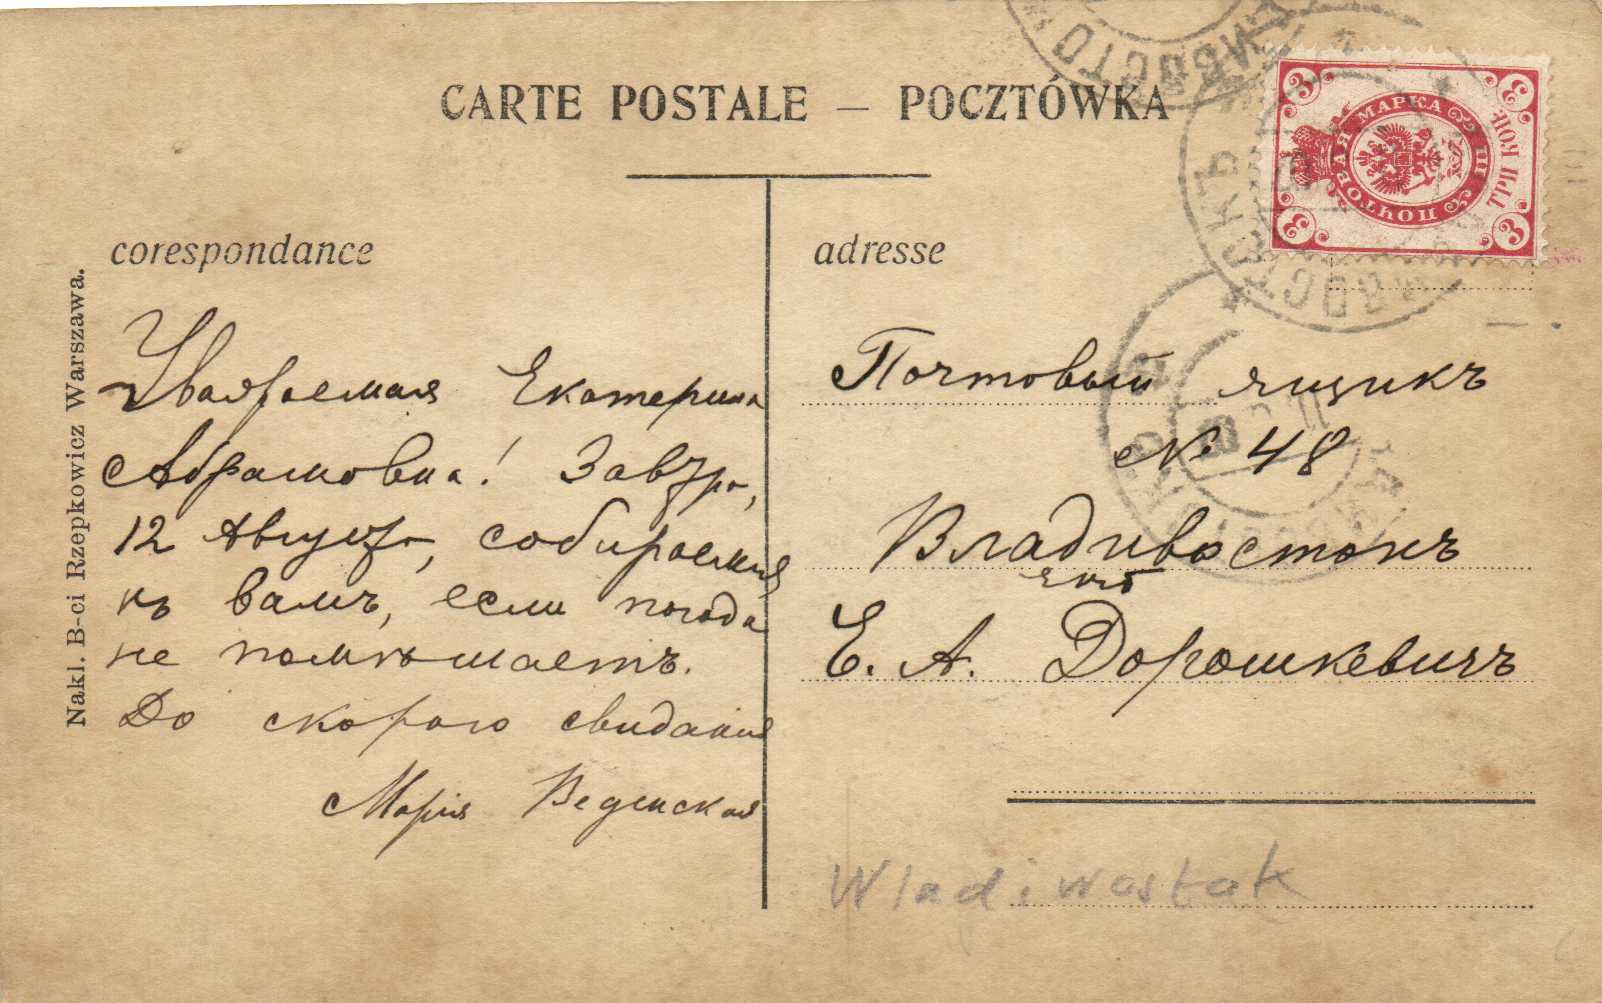 CARTE POSTALE — POCZTÓWKA
corespondance
Уважаемая Екатерина
Абрамовна! Завтра,
12 Августа, собираемся
къ вамъ, если погода
не помѣшаетъ.
До скораго свиданія
Марія
Nakl. B-ci Rzepkowicz Warszawa.
adresse
Почтовый ящикъ
№ 48
Владивостокъ
Е. А. Дорошкевичъ
Wladiwostok
ПОЧТОВАЯ МАРКА
ТРИ КОП.
3
3
3
3